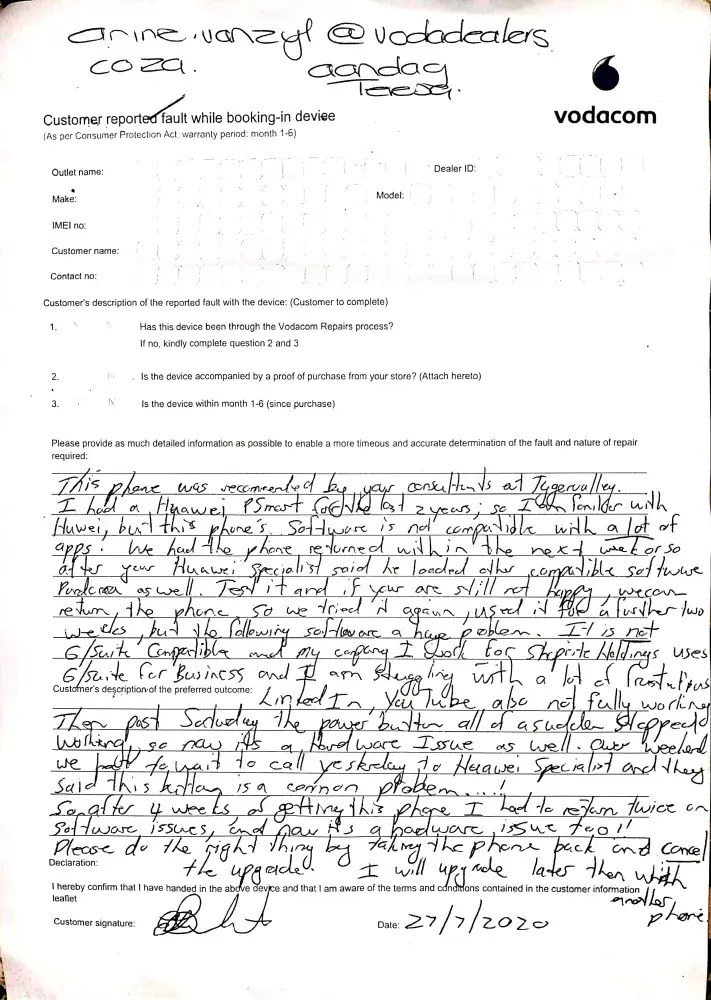 arine.vanzyl@vodadealers
co za.
aandag
Teresa.
Customer reported fault while booking-in device
(As per Consumer Protection Act, warranty period: month 1-6)
vodacom
Outlet name:
Dealer ID:
Make:
Model:
IMEI no:
Customer name:
Contact no:
Customer's description of the reported fault with the device: (Customer to complete)
1. N Has this device been through the Vodacom Repairs process?
If no, kindly complete question 2 and 3
2. N Is the device accompanied by a proof of purchase from your store? (Attach hereto)
3. N Is the device within month 1-6 (since purchase)
Please provide as much detailed information as possible to enable a more timeous and accurate determination of the fault and nature of repair
required:
This phone was recommended by your consultants at Tygervalley.
I had a Huawei PSmart for the last 2 years, so I am familier with
Huwei, but this phone's Software is not compatible with a lot of
apps. We had the phone returned within the next week or so
after your Huawei Specialist said he loaded other compatible software
as well. Test it and if your are still not happy, we can
return the phone, so we tried it again, used it for a further two
weeks, but the following software a huge problem. It is not
G/Suite Compatible and my company I work for Shoprite Holdings uses
G/Suite for Business and I am struggling with a lot of frustrations
Customer's description of the preferred outcome:
LinkedIn, YouTube also not fully working
Then past Saturday the power button all of a sudden stopped
working, so now its a hardware Issue as well. Over weekend
we had to wait to call yesterday to Huawei Specialist and they
Said this button is a common problem....!
So after 4 weeks of getting this phone I had to return twice on
Software issues, and now its a hardware issue too!!
Please do the right thing by taking the phone back and cancel
Declaration:
the upgrade. I will upgrade later then with
another
phone.
I hereby confirm that I have handed in the above device and that I am aware of the terms and conditions contained in the customer information
leaflet
Customer signature:
Date: 27/7/2020